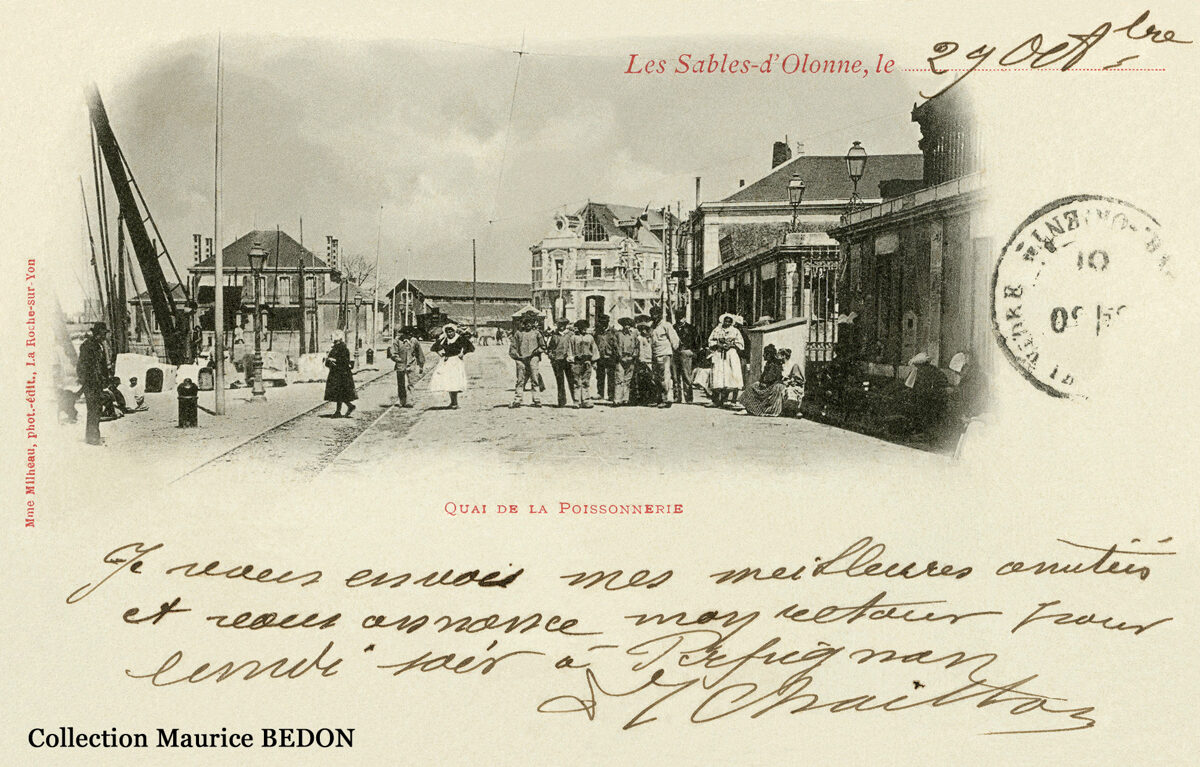 Les Sables-d'Olonne, le 29 Octbre
Mme Milheau, phot.-édit., La Roche-sur-Yon
QUAI DE LA POISSONNERIE
Je vous envois mes meilleures amitiés
et vous annonce mon retour pour
lundi soir à Perpignan
Chailloz
Collection Maurice BEDON